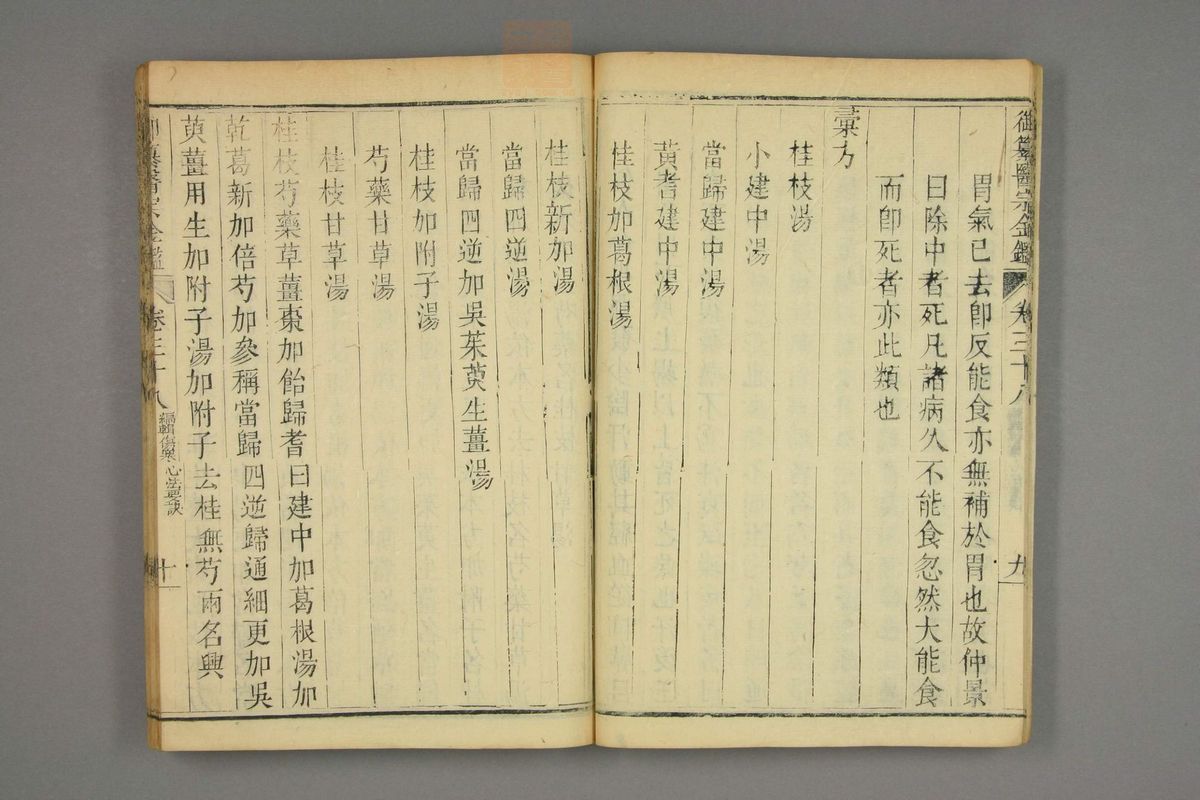 御纂醫宗金鑑 卷三十八 九
胃氣已去卽反能食亦無補於胃也故仲景
曰除中者死凡諸病久不能食忽然大能食
而卽死者亦此類也
彙方
桂枝湯
小建中湯
當歸建中湯
黃耆建中湯
桂枝加葛根湯
桂枝新加湯
當歸四逆湯
當歸四逆加吳茱萸生薑湯
桂枝加附子湯
芍藥甘草湯
桂枝甘草湯
桂枝芍藥草薑棗加飴歸耆曰建中加葛根湯加
乾葛新加倍芍加參稱當歸四逆歸通細更加吳
萸薑用生加附子湯加附子去桂無芍雨名興
御纂醫宗金鑑 卷三十八 編輯傷寒心法要訣 十